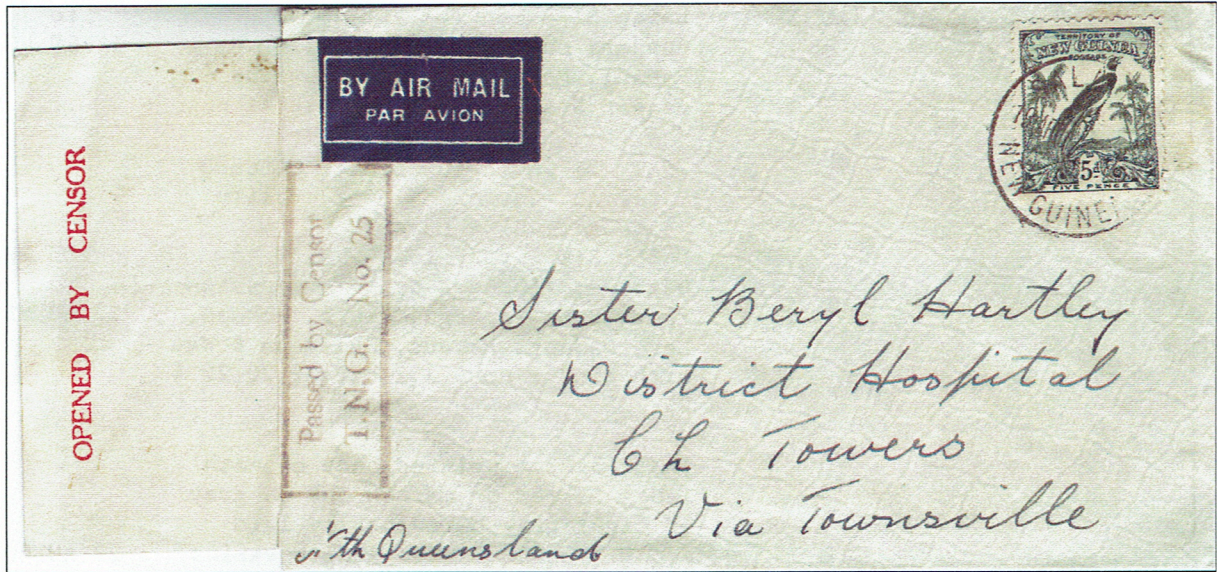 OPENED BY CENSOR
BY AIR MAIL
PAR AVION
Passed by Censor
T.N.G. No. 25
TERRITORY OF
NEW GUINEA
POSTAGE
5d
FIVE PENCE
NEW GUINEA
Sister Beryl Hartley
District Hospital
Ch Towers
Via Townsville
Queensland